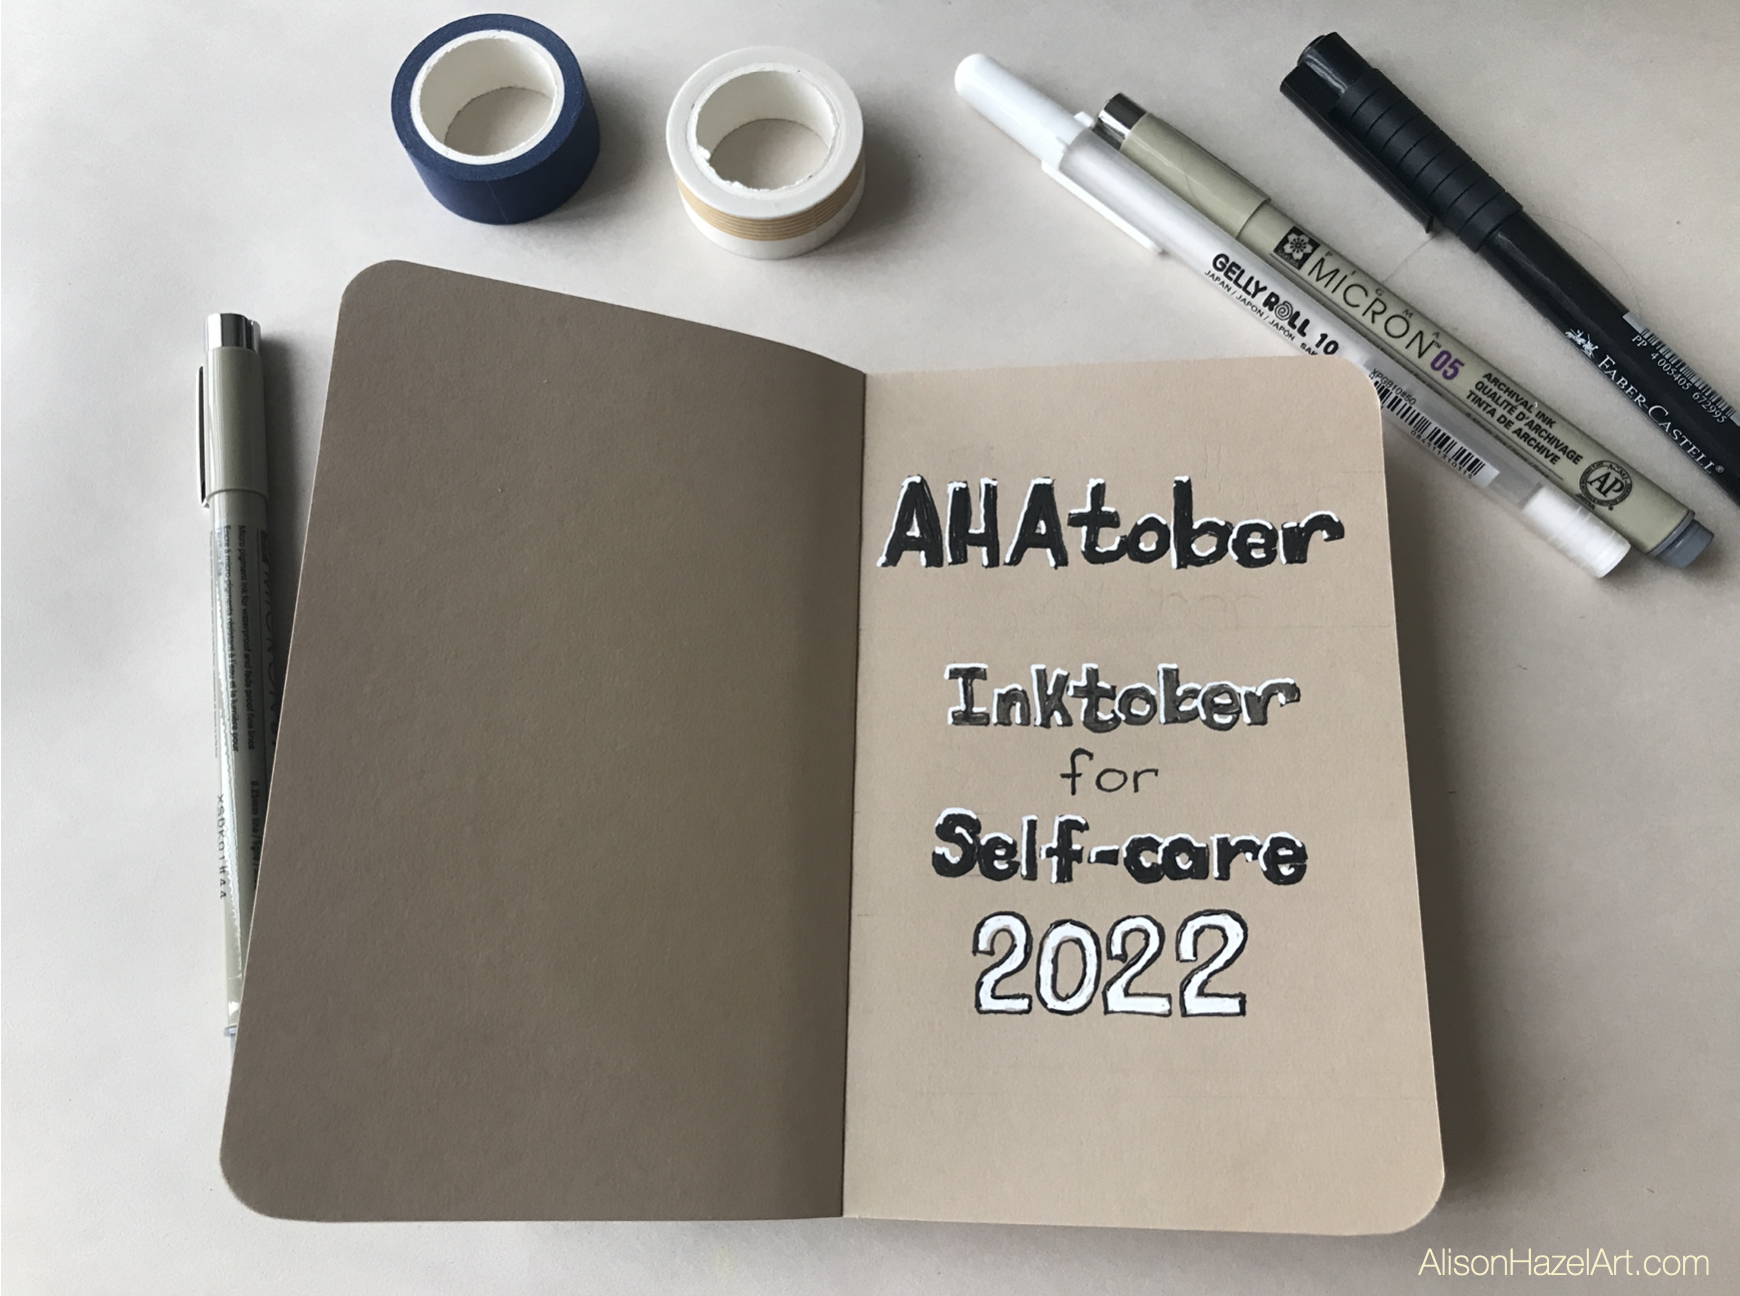 GELLY ROLL 10
JAPAN / JAPON / JAPÓN
PIGMA
MICRON™ 05
ARCHIVAL INK
QUALITÉ D'ARCHIVAGE
TINTA DE ARCHIVE
AP
XPGB10#50
PP 4 005405 672995
FABER-CASTELL®
AHAtober
Inktober
for
Self-care
2022
AlisonHazelArt.com